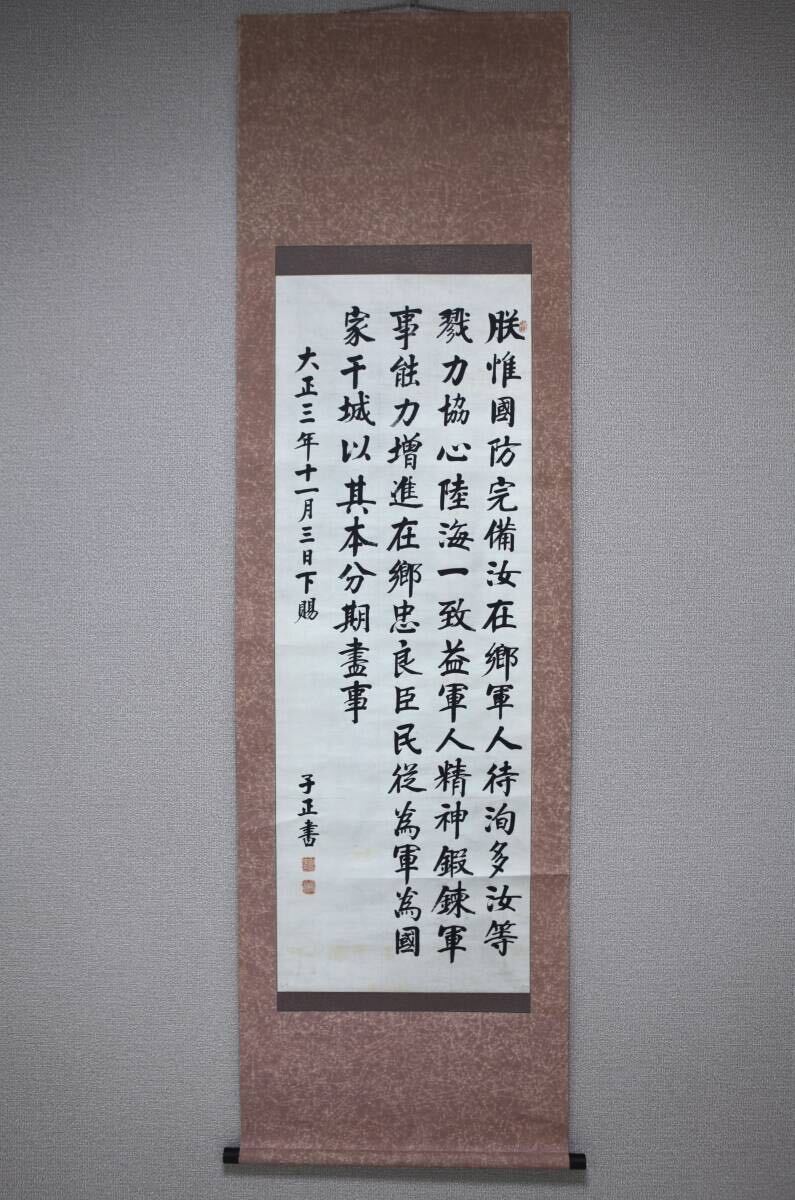 朕惟國防完備汝在鄉軍人待洵多汝等
戮力協心陸海一致益軍人精神鍛鍊軍
事能力增進在鄉忠良臣民從為軍為國
家干城以其本分期盡事
大正三年十一月三日下賜
子正書